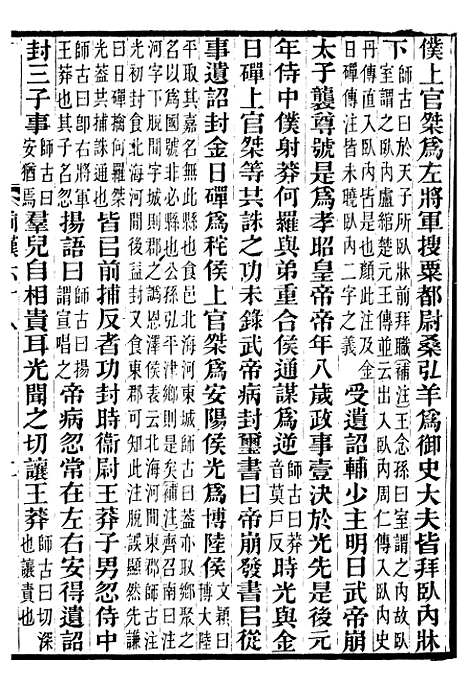 僕上官桀爲左將軍搜粟都尉桑弘羊爲御史大夫皆拜臥內牀
下師古曰於天子所臥牀前拜職補注王念孫曰室謂之臥內室謂之臥內盧綰楚元王傳並云出入臥內周仁傳入臥內史
丹傳直入臥內皆是也顏此注及金日磾傳注皆未曉臥內二字之義受遺詔輔少主明日武帝崩
太子襲尊號是爲孝昭皇帝帝年八歲政事壹決於光先是後元
年侍中僕射莽何羅與弟重合侯通謀爲逆師古曰莽音莫戶反時光與金
日磾上官桀等共誅之功未錄武帝病封璽書曰帝崩發書㠯從
事遺詔封金日磾爲秺侯上官桀爲安陽侯光爲博陸侯文穎曰博大陸
平取其嘉名無此縣也食邑北海河東城師古曰蓋亦取鄉聚之名以爲國號非必縣也公孫弘平津鄉則是矣補注齊召南曰注
河字下脫間字城則郡之譌恩澤侯表云北海河間東郡師古注光初封食北海河間後益封又食東郡可知此注脫誤顯然先謙
曰日磾擒何羅桀光並共捕誅通也皆㠯前捕反者功封時衞尉王莽子男忽侍中
師古曰卽右將軍王莽也其子名忽揚語曰師古曰揚謂宣唱之帝病忽常在左右安得遺詔
封三子事師古曰安猶焉羣兒自相貴耳光聞之切讓王莽師古曰切深也讓責也